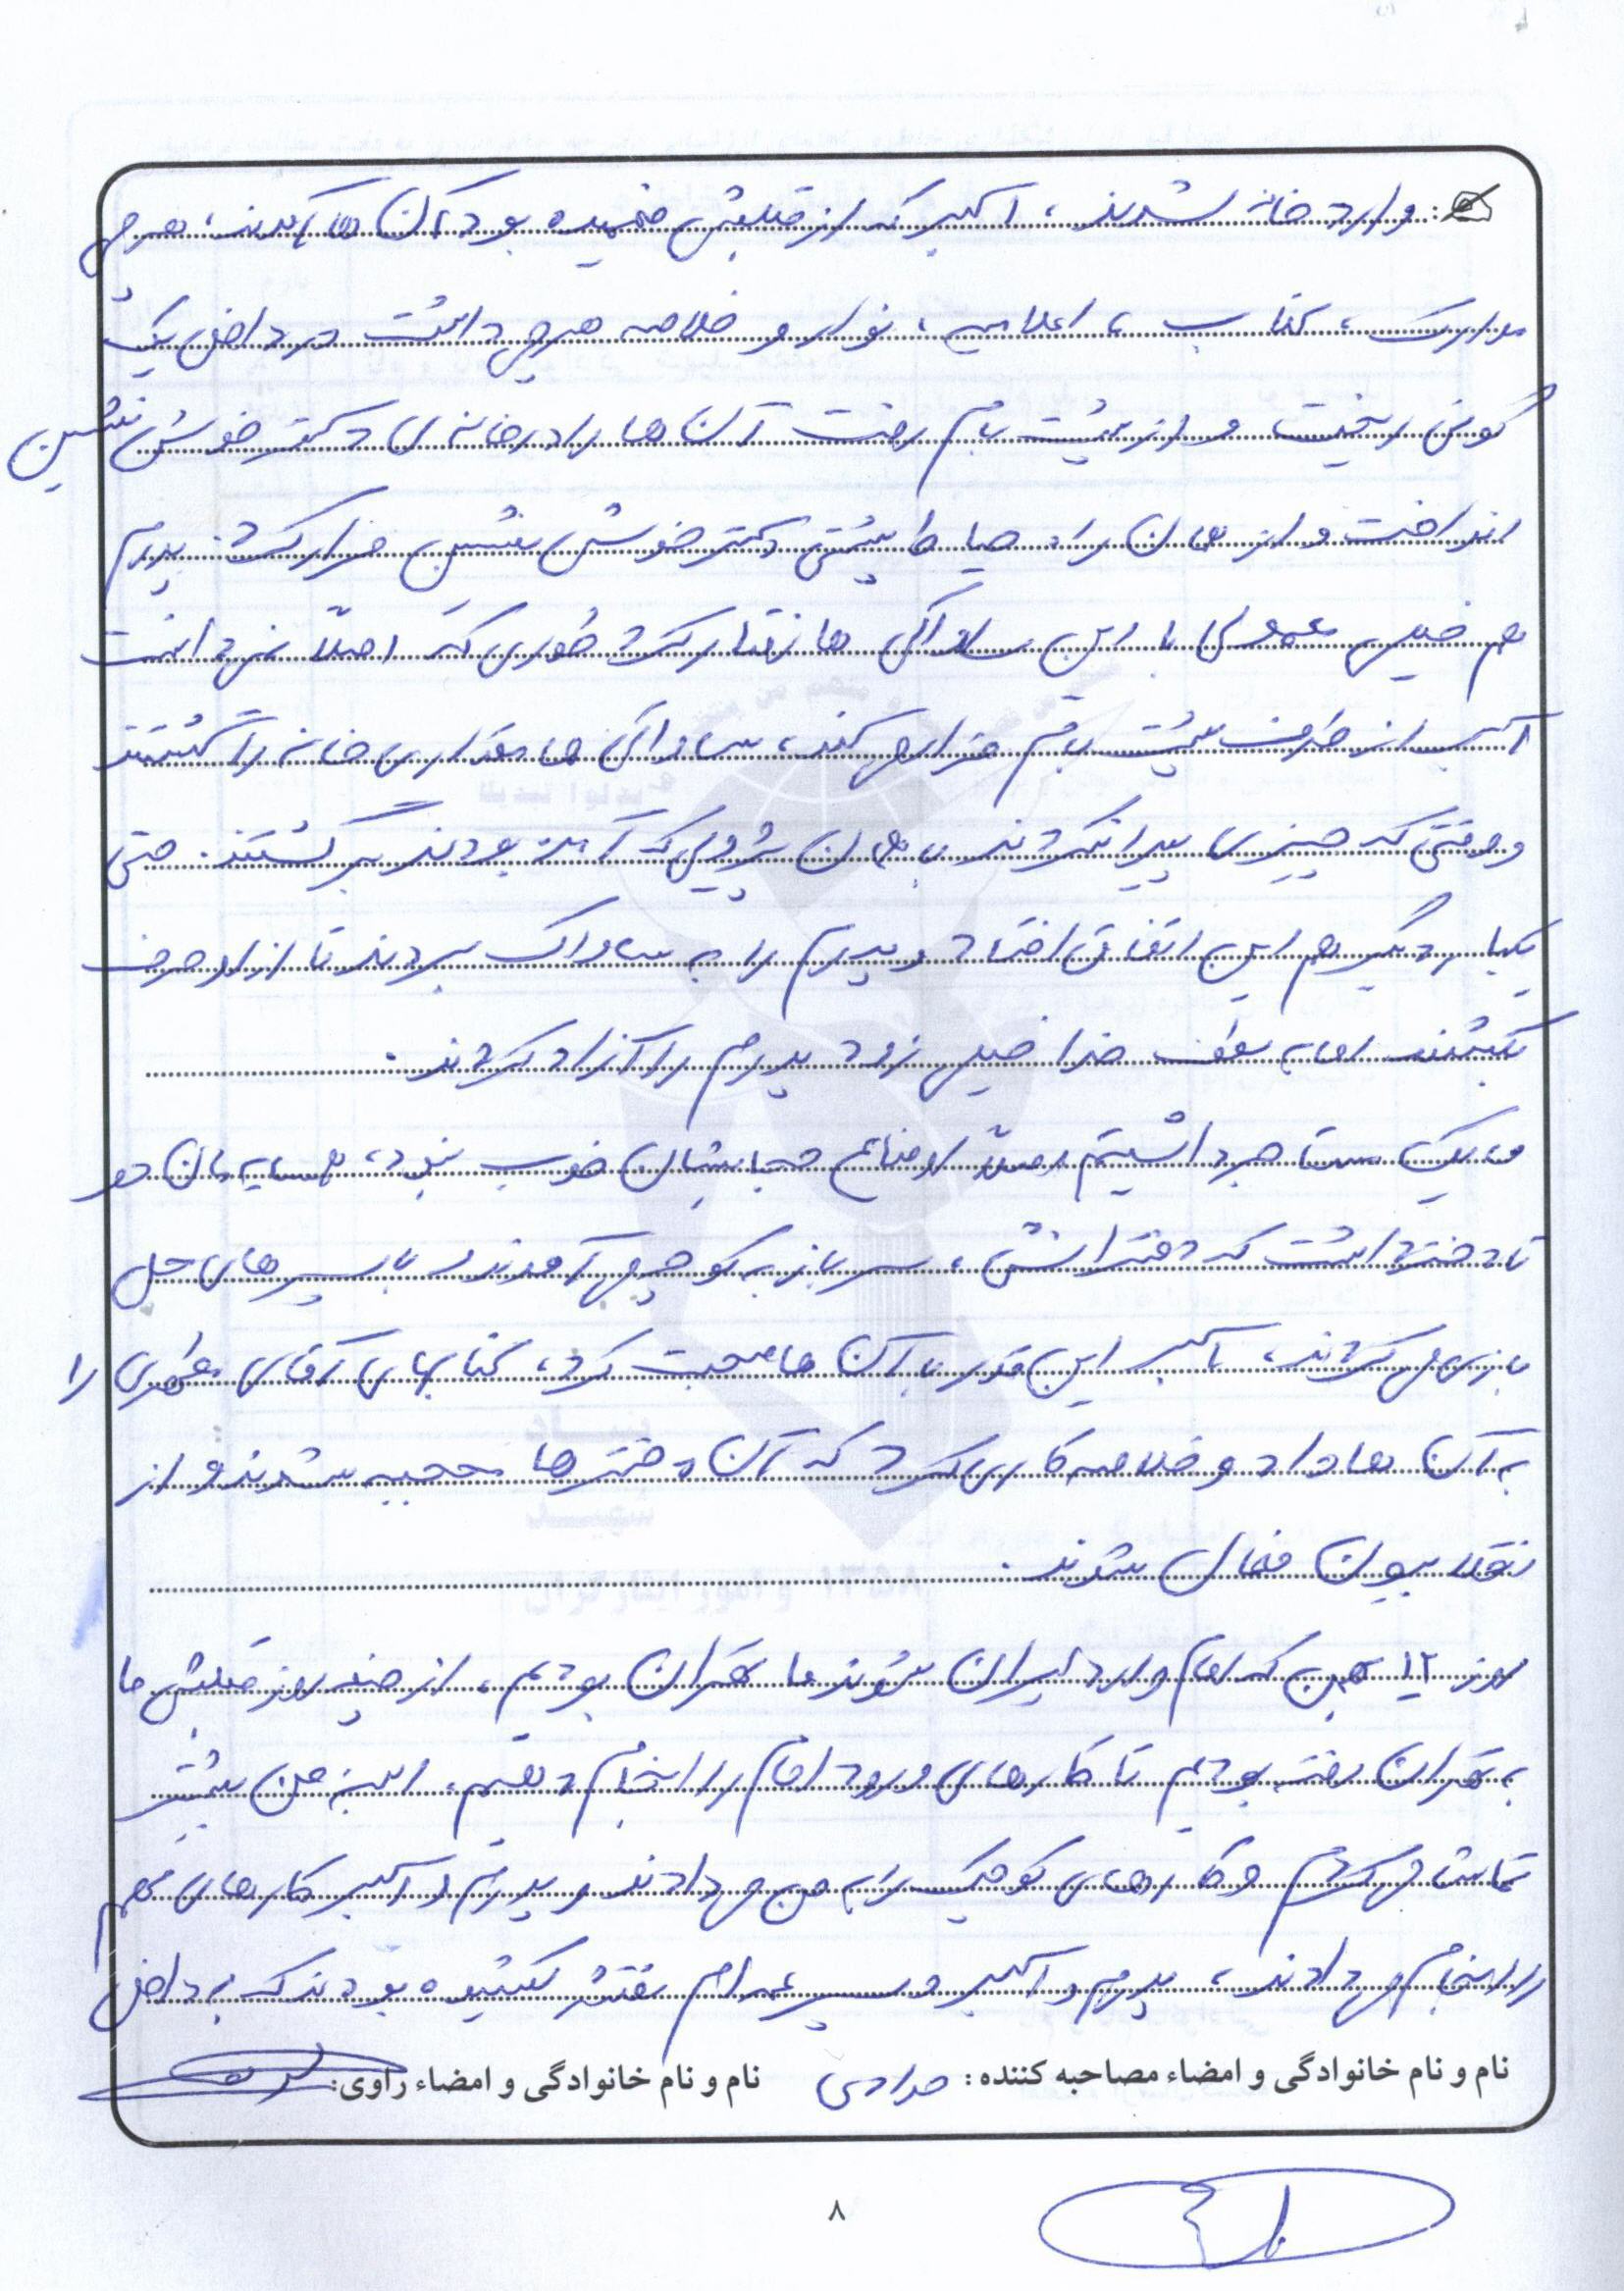 وارد خانه شدند، اکبر که از قبلش فهمیده بود آن ها آمدند، هرچی
مدارک، کتاب، اعلامیه، نوار و خلاصه هرچی داشت در داخل یک
گونی ریخت و از پشت بام رفت آن ها را در خانه ی دکتر خوش نشین
انداخت و از همان راه حیاط پشتی دکتر خوش نشین فرار کرد. پدرم
هم خیلی معمولی با این ساواکی ها رفتار کرد طوری که اصلاً نمی دانست
اکبر از طرف پشت بام فرار می کند، ساواکی ها مقداری خانه را گشتند
و وقتی که چیزی پیدا نکردند با همان شوری که آمده بودند برگشتند. حتی
یکبار دیگر هم این اتفاق افتاد و پدرم را به ساواک بردند تا از او حرف
بکشند اما به لطف خدا خیلی زود پدرم را آزاد کردند.
ما یک مستاجر داشتیم اوضاع حجابشان خوب نبود، همسایه مان دو
تا دختر داشت که دخترانش، سرباز به کوچه می آمدند و با پسرهای محل
بازی می کردند، اکبر این قدر با آن ها صحبت کرد، کتابهای آقای مطهری را
به آن ها داد و خلاصه کاری کرد که آن دخترها محجبه شدند و از
انقلابیون فعال شدند.
روز ۱۲ بهمن که امام وارد ایران شدند ما تهران بودیم، از چند روز قبلش ما
به تهران رفته بودیم تا کارهای ورود امام را انجام دهیم، البته من بیشتر
تماشا می کردم و کارهای کوچیک را به من می دادند و پدرم و اکبر کارهای مهم
را انجام می دادند، پدرم و اکبر و پسر عمه ام نقشه کشیده بودند که به داخل
نام و نام خانوادگی و امضاء مصاحبه کننده: مرادی نام و نام خانوادگی و امضاء راوی:
۸